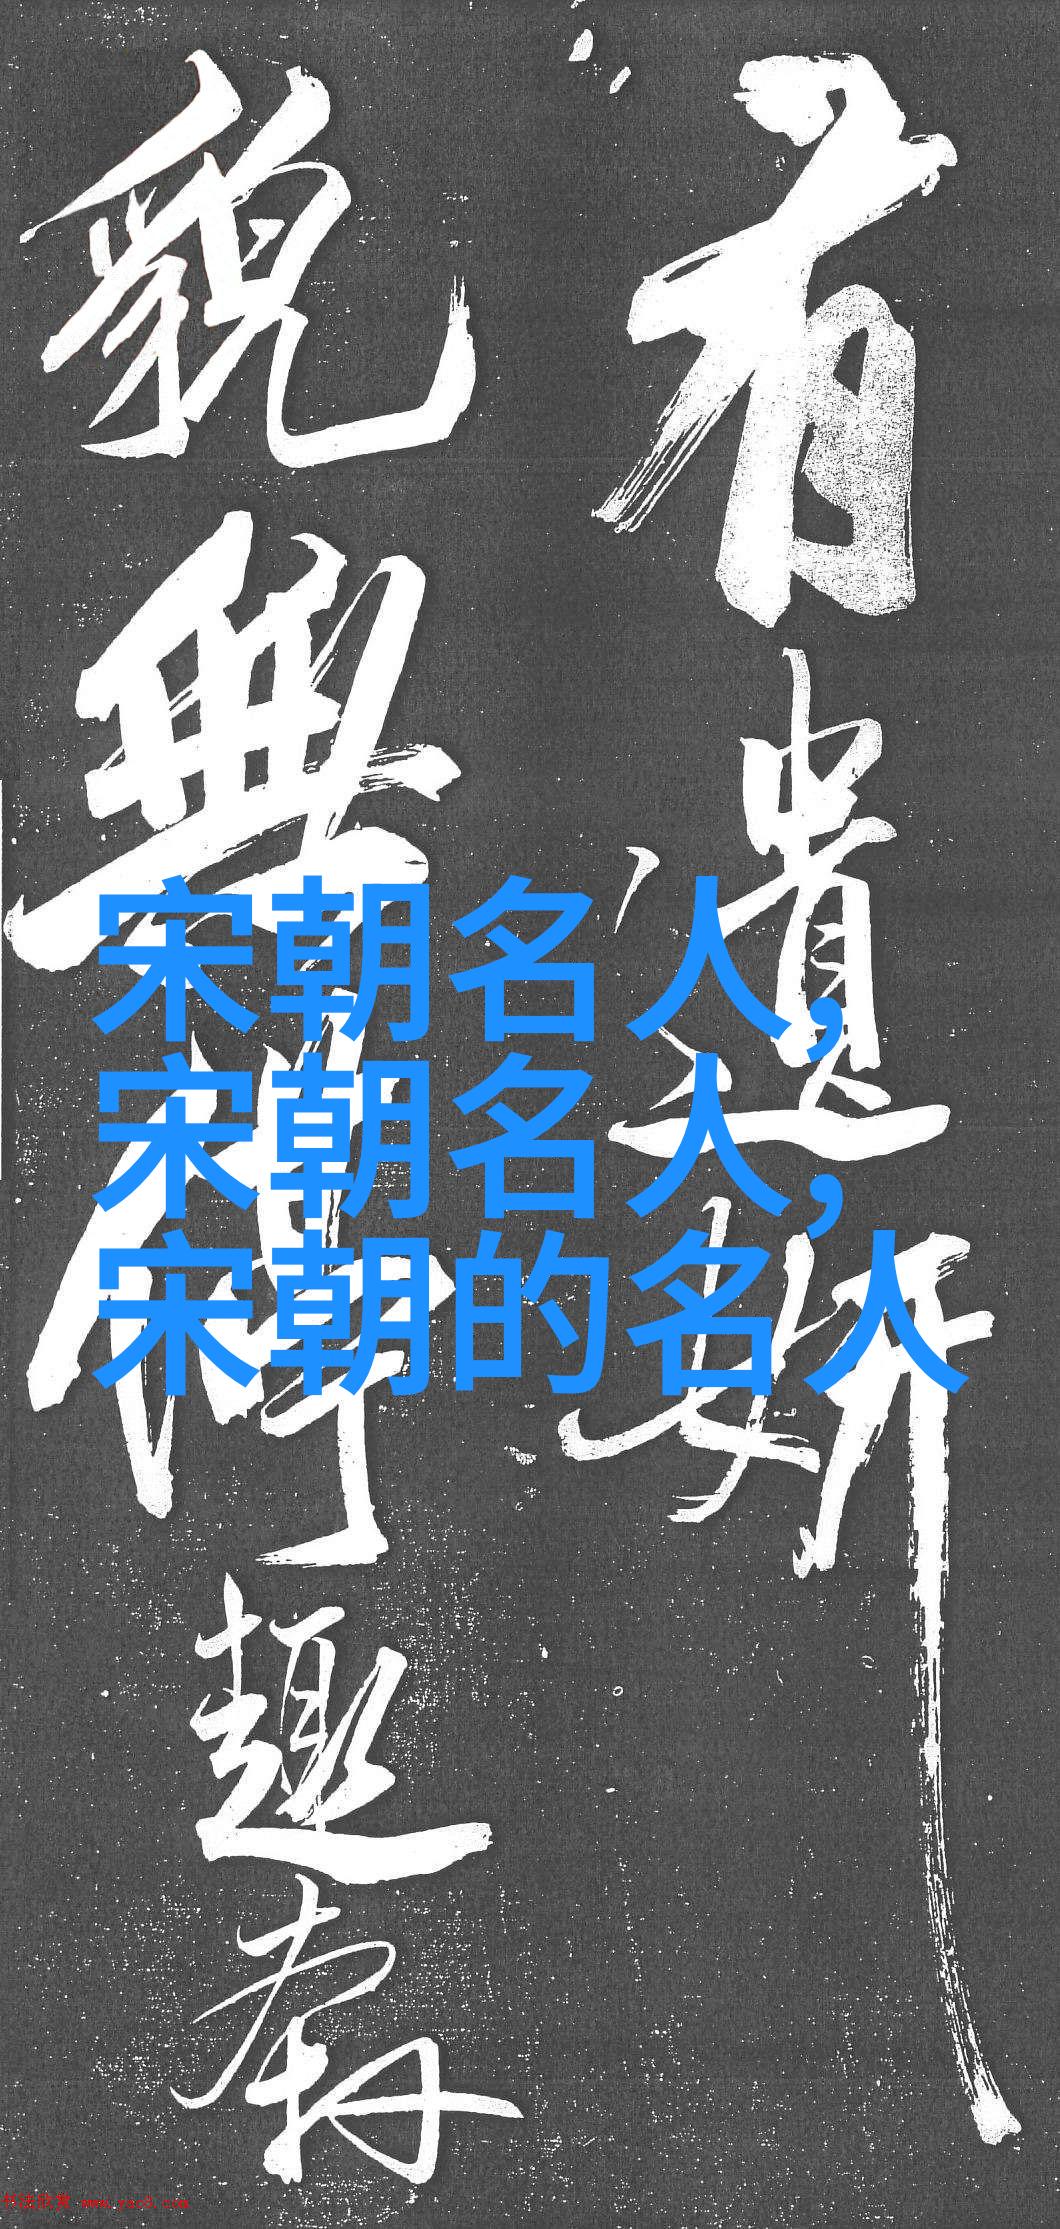 有遺妍
貌無
趣
宋朝名人,
宋朝名人,
宋朝的名人
书法欣赏 www.yac8.com